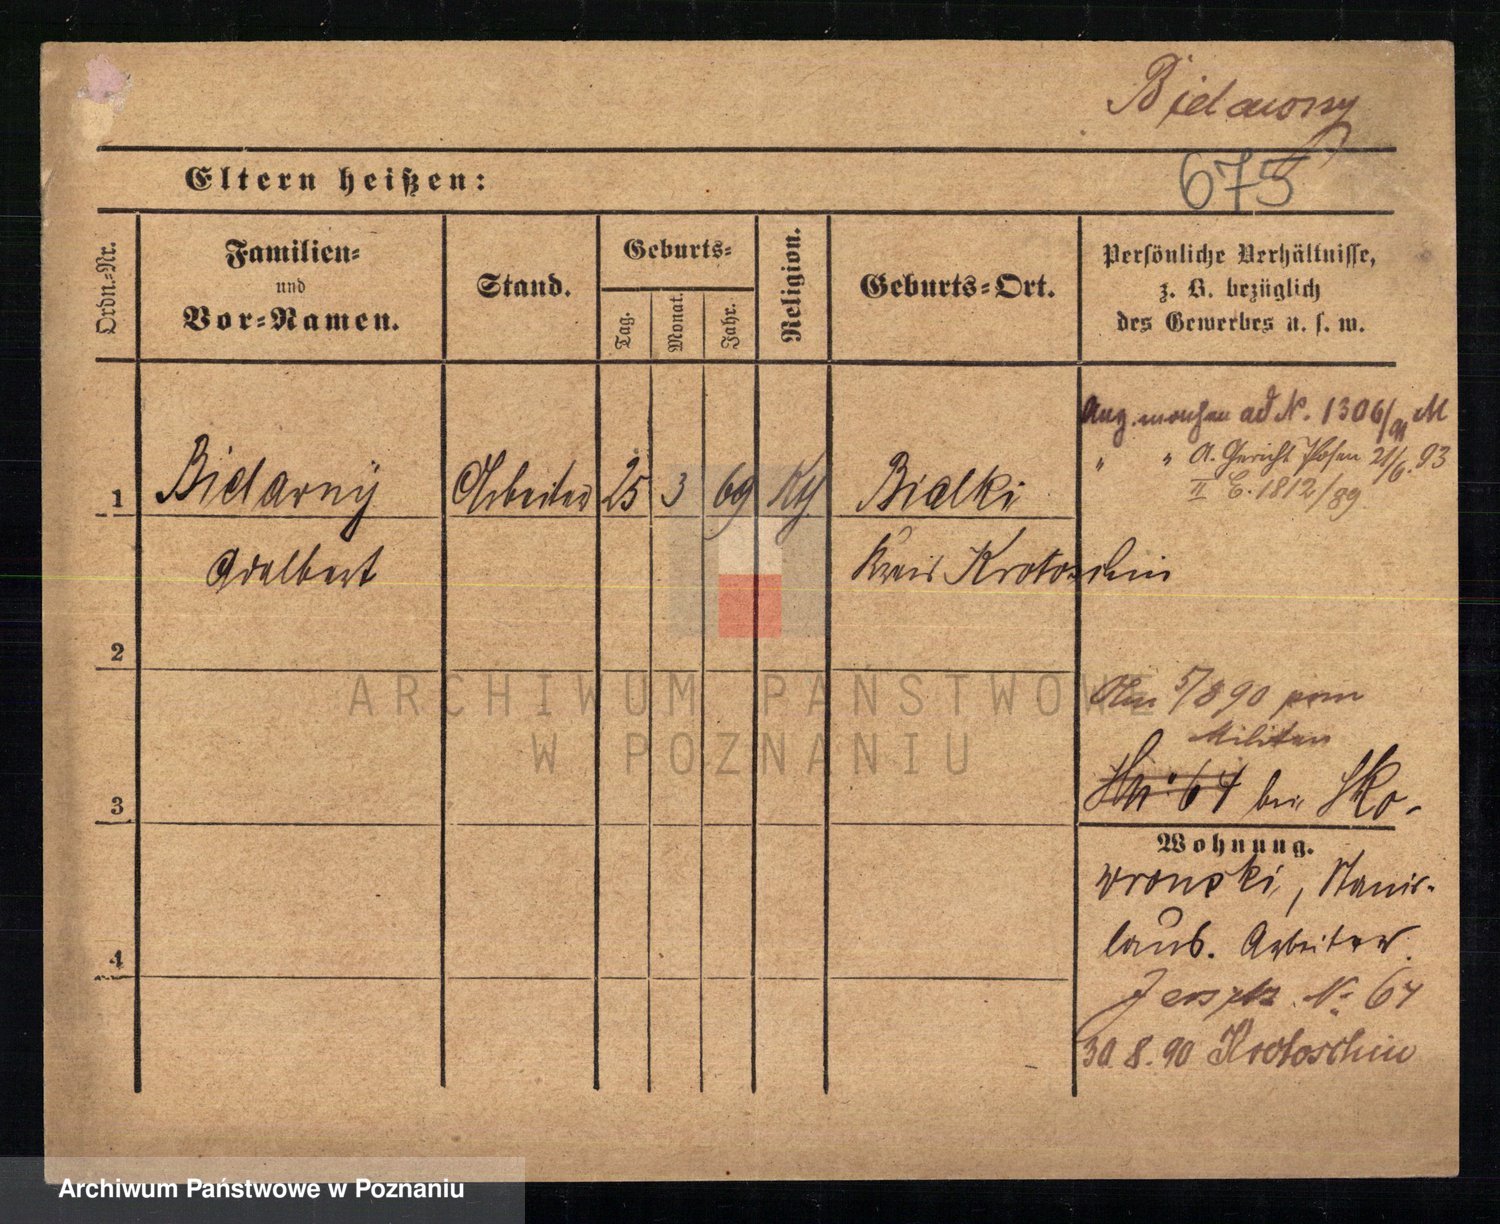 Bidarny
675
Eltern heißen:
Ordn.-Nr.
Familien-
und
Vor-Namen.
Stand.
Geburts-
Tag.
Monat.
Jahr.
Religion.
Geburts-Ort.
Persönliche Verhältnisse,
z. B. bezüglich
des Gewerbes u. s. w.
ad N. 1306/91 M
" " A. Gericht Posen 21/6. 93
II E. 1812/89
1 Bidarny Arbeiter 25 3 69 Kth Bialki
Adalbert Kreis Krotoschin
2
5/8 90 vom
Militär
3
No 64 bei Sko-
Wohnung.
wronski, Stanis-
laus. Arbeiter.
4
Jersytz No 64
30.8.90 Krotoschin
ARCHIWUM PAŃSTWOWE
W POZNANIU
Archiwum Państwowe w Poznaniu